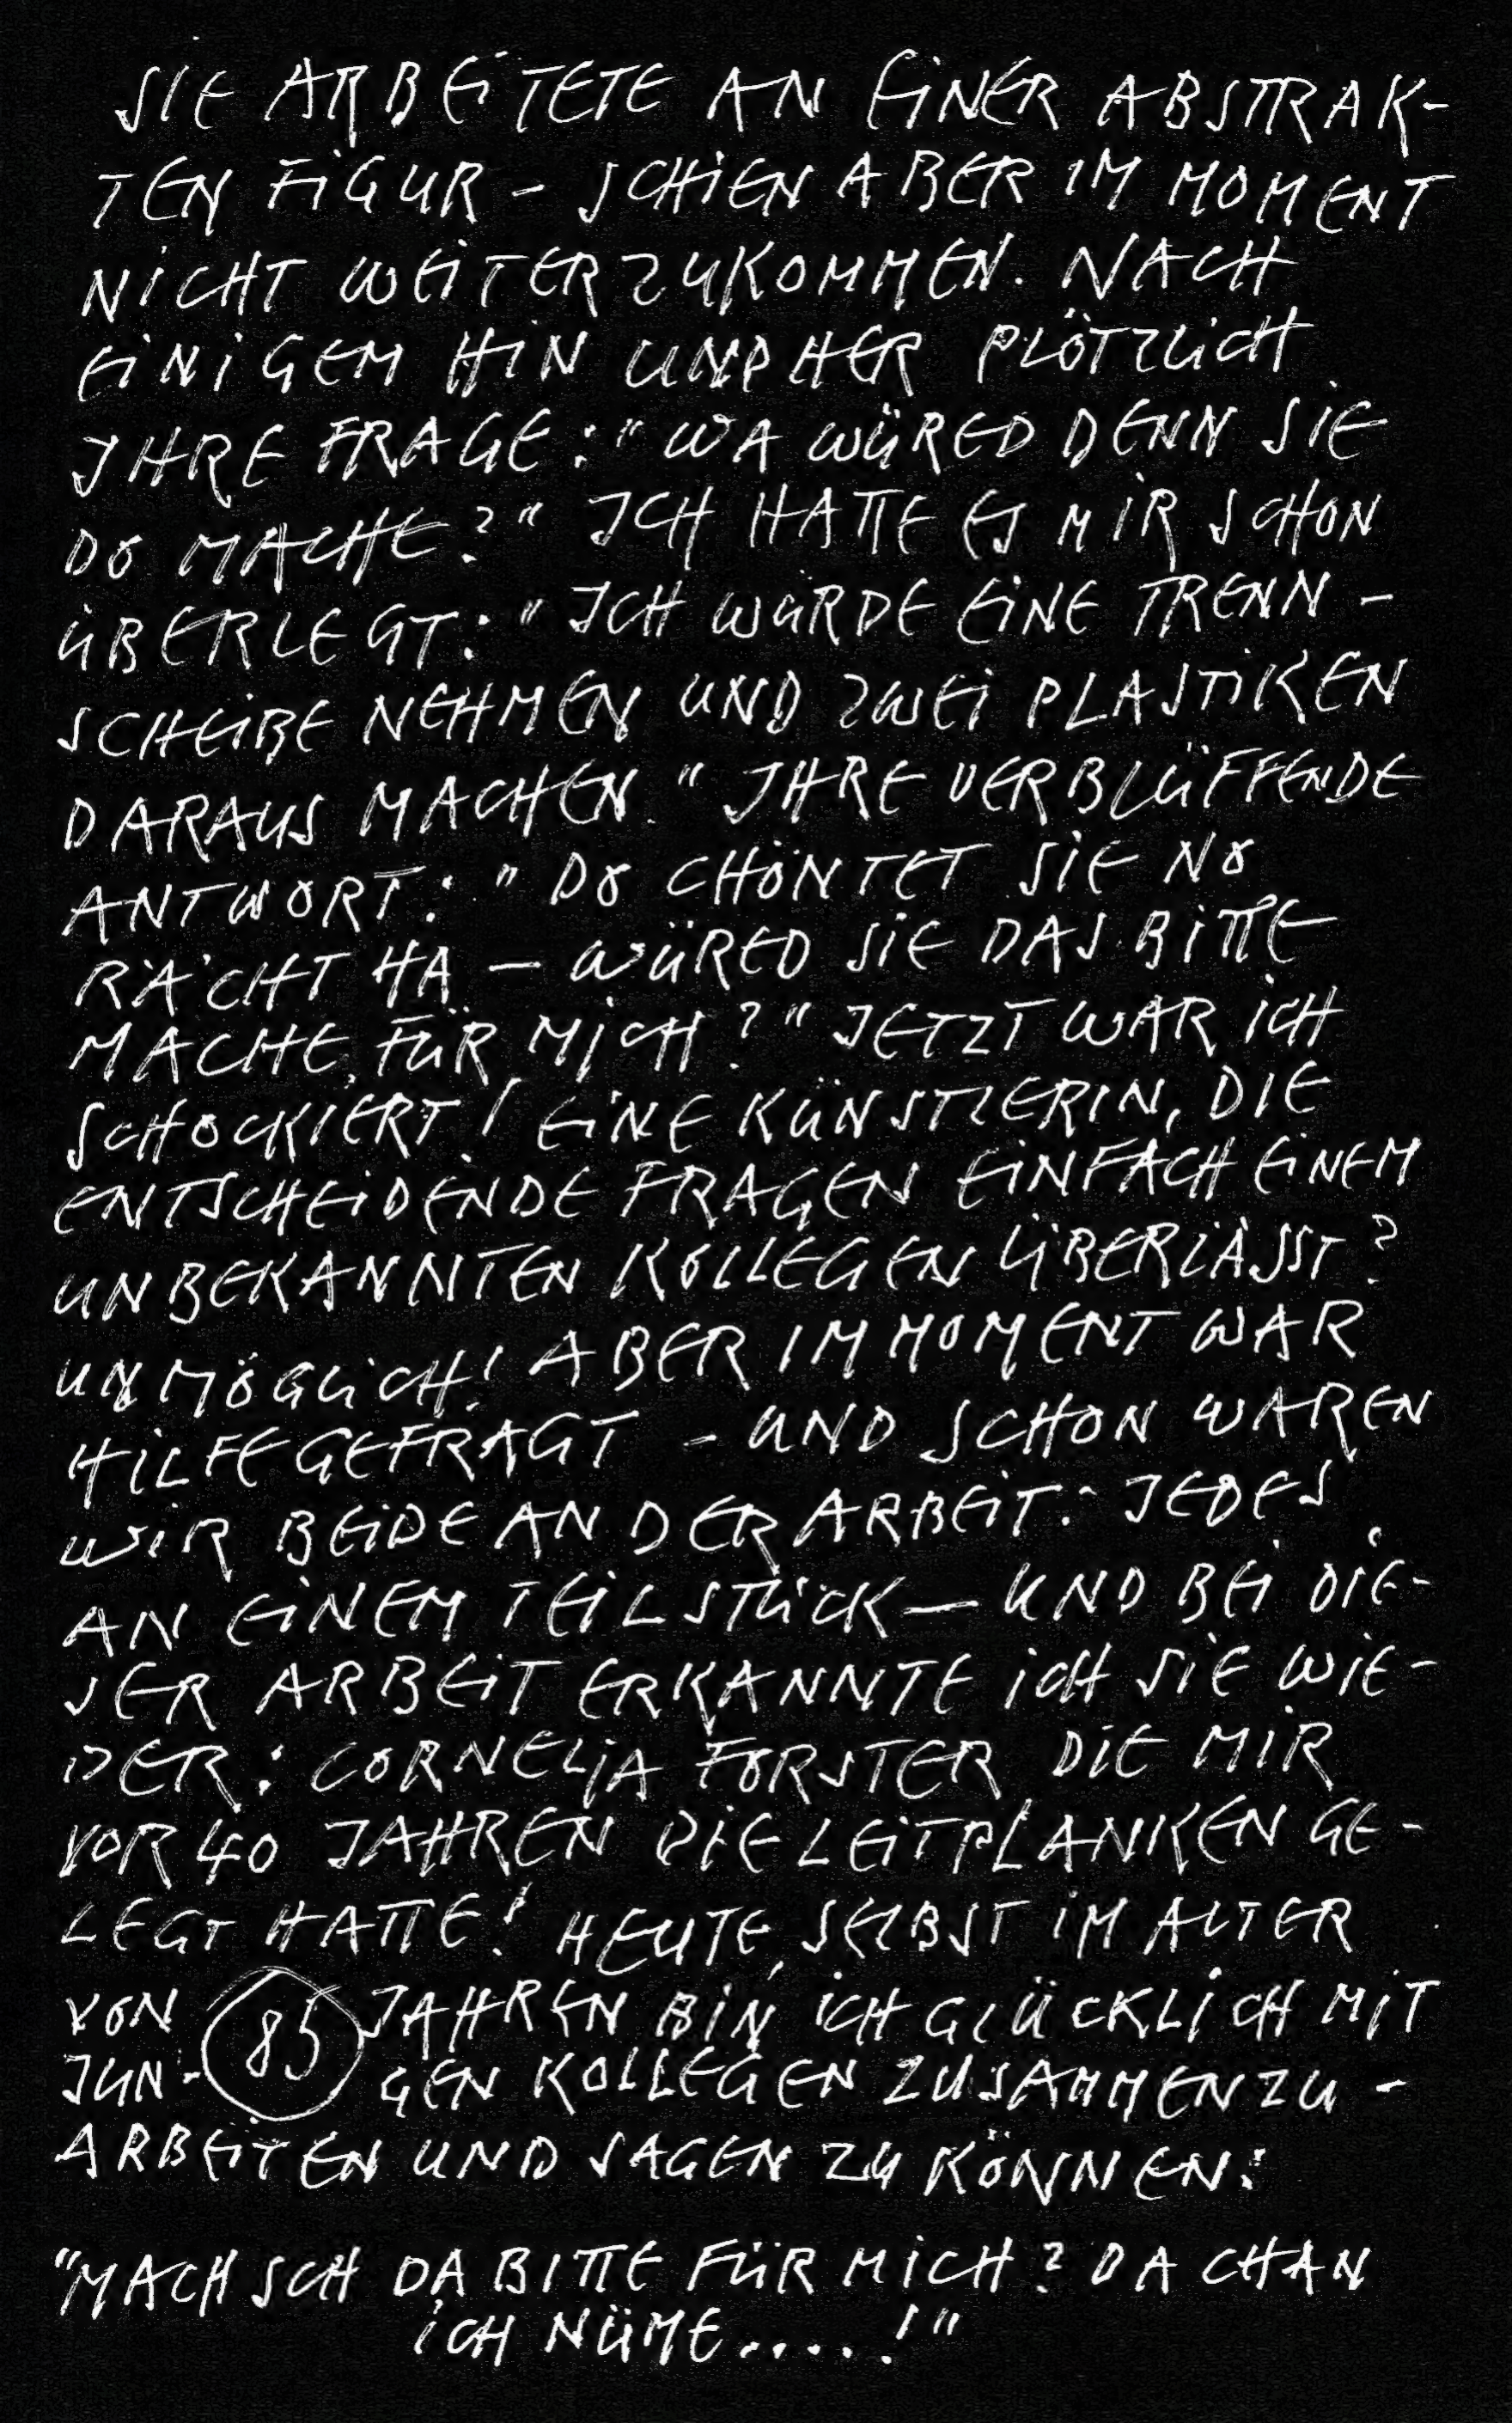 SIE ARBEITETE AN EINER ABSTRAK-
TEN FIGUR - SCHIEN ABER IM MOMENT
NICHT WEITERZUKOMMEN. NACH
EINIGEM HIN UND HER PLÖTZLICH
IHRE FRAGE: "WA WÜRED DENN SIE
DO MACHE?" ICH HATTE ES MIR SCHON
ÜBERLEGT: "ICH WÜRDE EINE TRENN-
SCHEIBE NEHMEN UND ZWEI PLASTIKEN
DARAUS MACHEN." IHRE VERBLÜFFENDE
ANTWORT: "DO CHÖNTET SIE NO
RÄCHT HA - WÜRED SIE DAS BITTE
MACHE FÜR MICH?" JETZT WAR ICH
SCHOCKIERT! EINE KÜNSTLERIN, DIE
ENTSCHEIDENDE FRAGEN EINFACH EINEM
UNBEKANNTEN KOLLEGEN ÜBERLÄSST?
UNMÖGLICH! ABER IM MOMENT WAR
HILFE GEFRAGT - UND SCHON WAREN
WIR BEIDE AN DER ARBEIT: JEDES
AN EINEM TEILSTÜCK - UND BEI DIE-
SER ARBEIT ERKANNTE ICH SIE WIE-
DER: CORNELIA FORSTER DIE MIR
VOR 40 JAHREN DIE LEITPLANKEN GE-
LEGT HATTE! HEUTE, SELBST IM ALTER
VON 85 JAHREN BIN ICH GLÜCKLICH MIT
JUN- GEN KOLLEGEN ZUSAMMENZU-
ARBEITEN UND SAGEN ZU KÖNNEN:
"MACHSCH DA BITTE FÜR MICH? DA CHAN
ICH NÜME.....!"